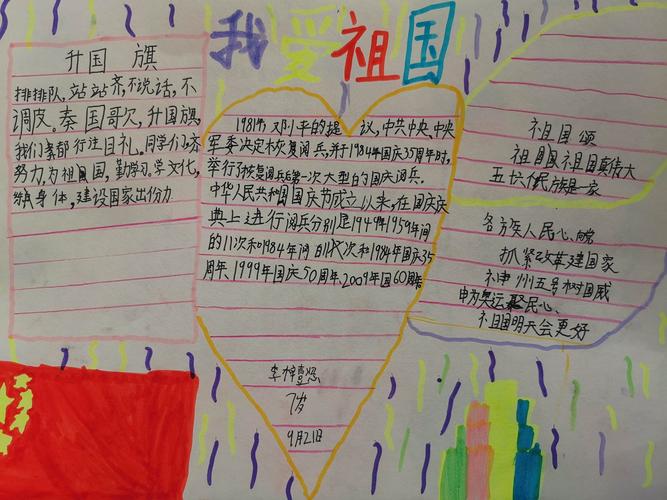 我爱祖国
升国 旗
排排队,站站齐,不说话,不
调皮。奏国哥欠,升国旗,
我们素都行注目礼。同学们齐
努力,为祖国,勤学习学文化,
锻身体,建设国家出份力
1981年邓小平的提 议,中共中央、中央
军委决定恢复阅兵,并于1984年国庆35周年时,
举行了恢复阅兵后第一次大型的国庆阅兵。
中华人民共和国国庆节成立以来,在国庆庆
典上进行阅兵分别是1949年1959年间
的11次和1984年 次和1984年国庆35
周年、1999年国庆50周年、2009年国60周年
7岁
9月21日
祖国颂
祖国祖国真伟大
五十六民族是一家
各方族人民心
抓紧改革建国家
神州五号树国威
申为奥运聚民心、
祖国明天会更好